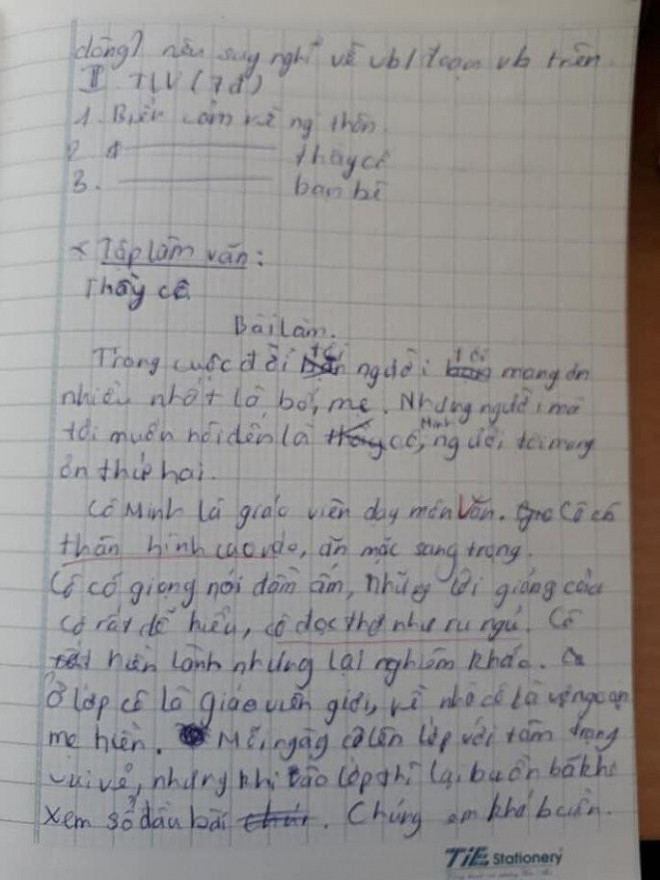 dòng) nêu suy nghĩ về vb/đoạn vb trên
II. TLV (7đ)
1. Biểu cảm về ng thân
2. thầy cô
3. bạn bè
x Tập làm văn:
Thầy cô
Bài làm.
Trong cuộc đời tôi người tôi mang ơn
nhiều nhất là bố, mẹ. Nhưng người mà
tôi muốn nói đến là cô Minh, người tôi mang
ơn thứ hai.
Cô Minh là giáo viên dạy môn Văn. Cô có
thân hình cao ráo, ăn mặc sang trọng.
Cô có giọng nói đầm ấm, những lời giảng của
cô rất dễ hiểu, cô đọc thơ như ru ngủ. Cô
hiền lành nhưng lại nghiêm khắc.
Ở lớp cô là giáo viên giỏi, về nhà cô là vợ ngoan
mẹ hiền. Mỗi ngày cô lên lớp với tâm trạng
vui vẻ, nhưng khi vào lớp thì lại buồn bã khi
xem sổ đầu bài. Chúng em khá buồn.
TiE Stationery